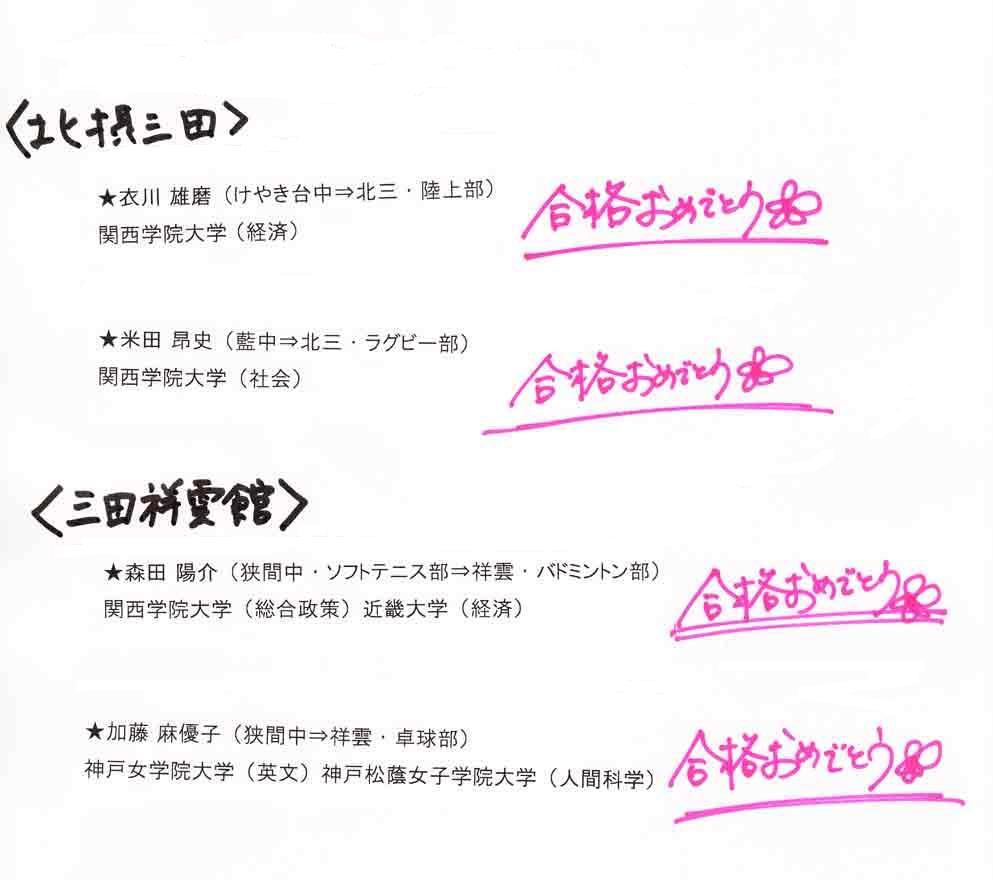 〈北摂三田〉
★衣川 雄磨（けやき台中⇒北三・陸上部）
関西学院大学（経済）
合格おめでとう
★米田 昂史（藍中⇒北三・ラグビー部）
関西学院大学（社会）
合格おめでとう
〈三田祥雲館〉
★森田 陽介（狭間中・ソフトテニス部⇒祥雲・バドミントン部）
関西学院大学（総合政策）近畿大学（経済）
合格おめでとう
★加藤 麻優子（狭間中⇒祥雲・卓球部）
神戸女学院大学（英文）神戸松蔭女子学院大学（人間科学）
合格おめでとう